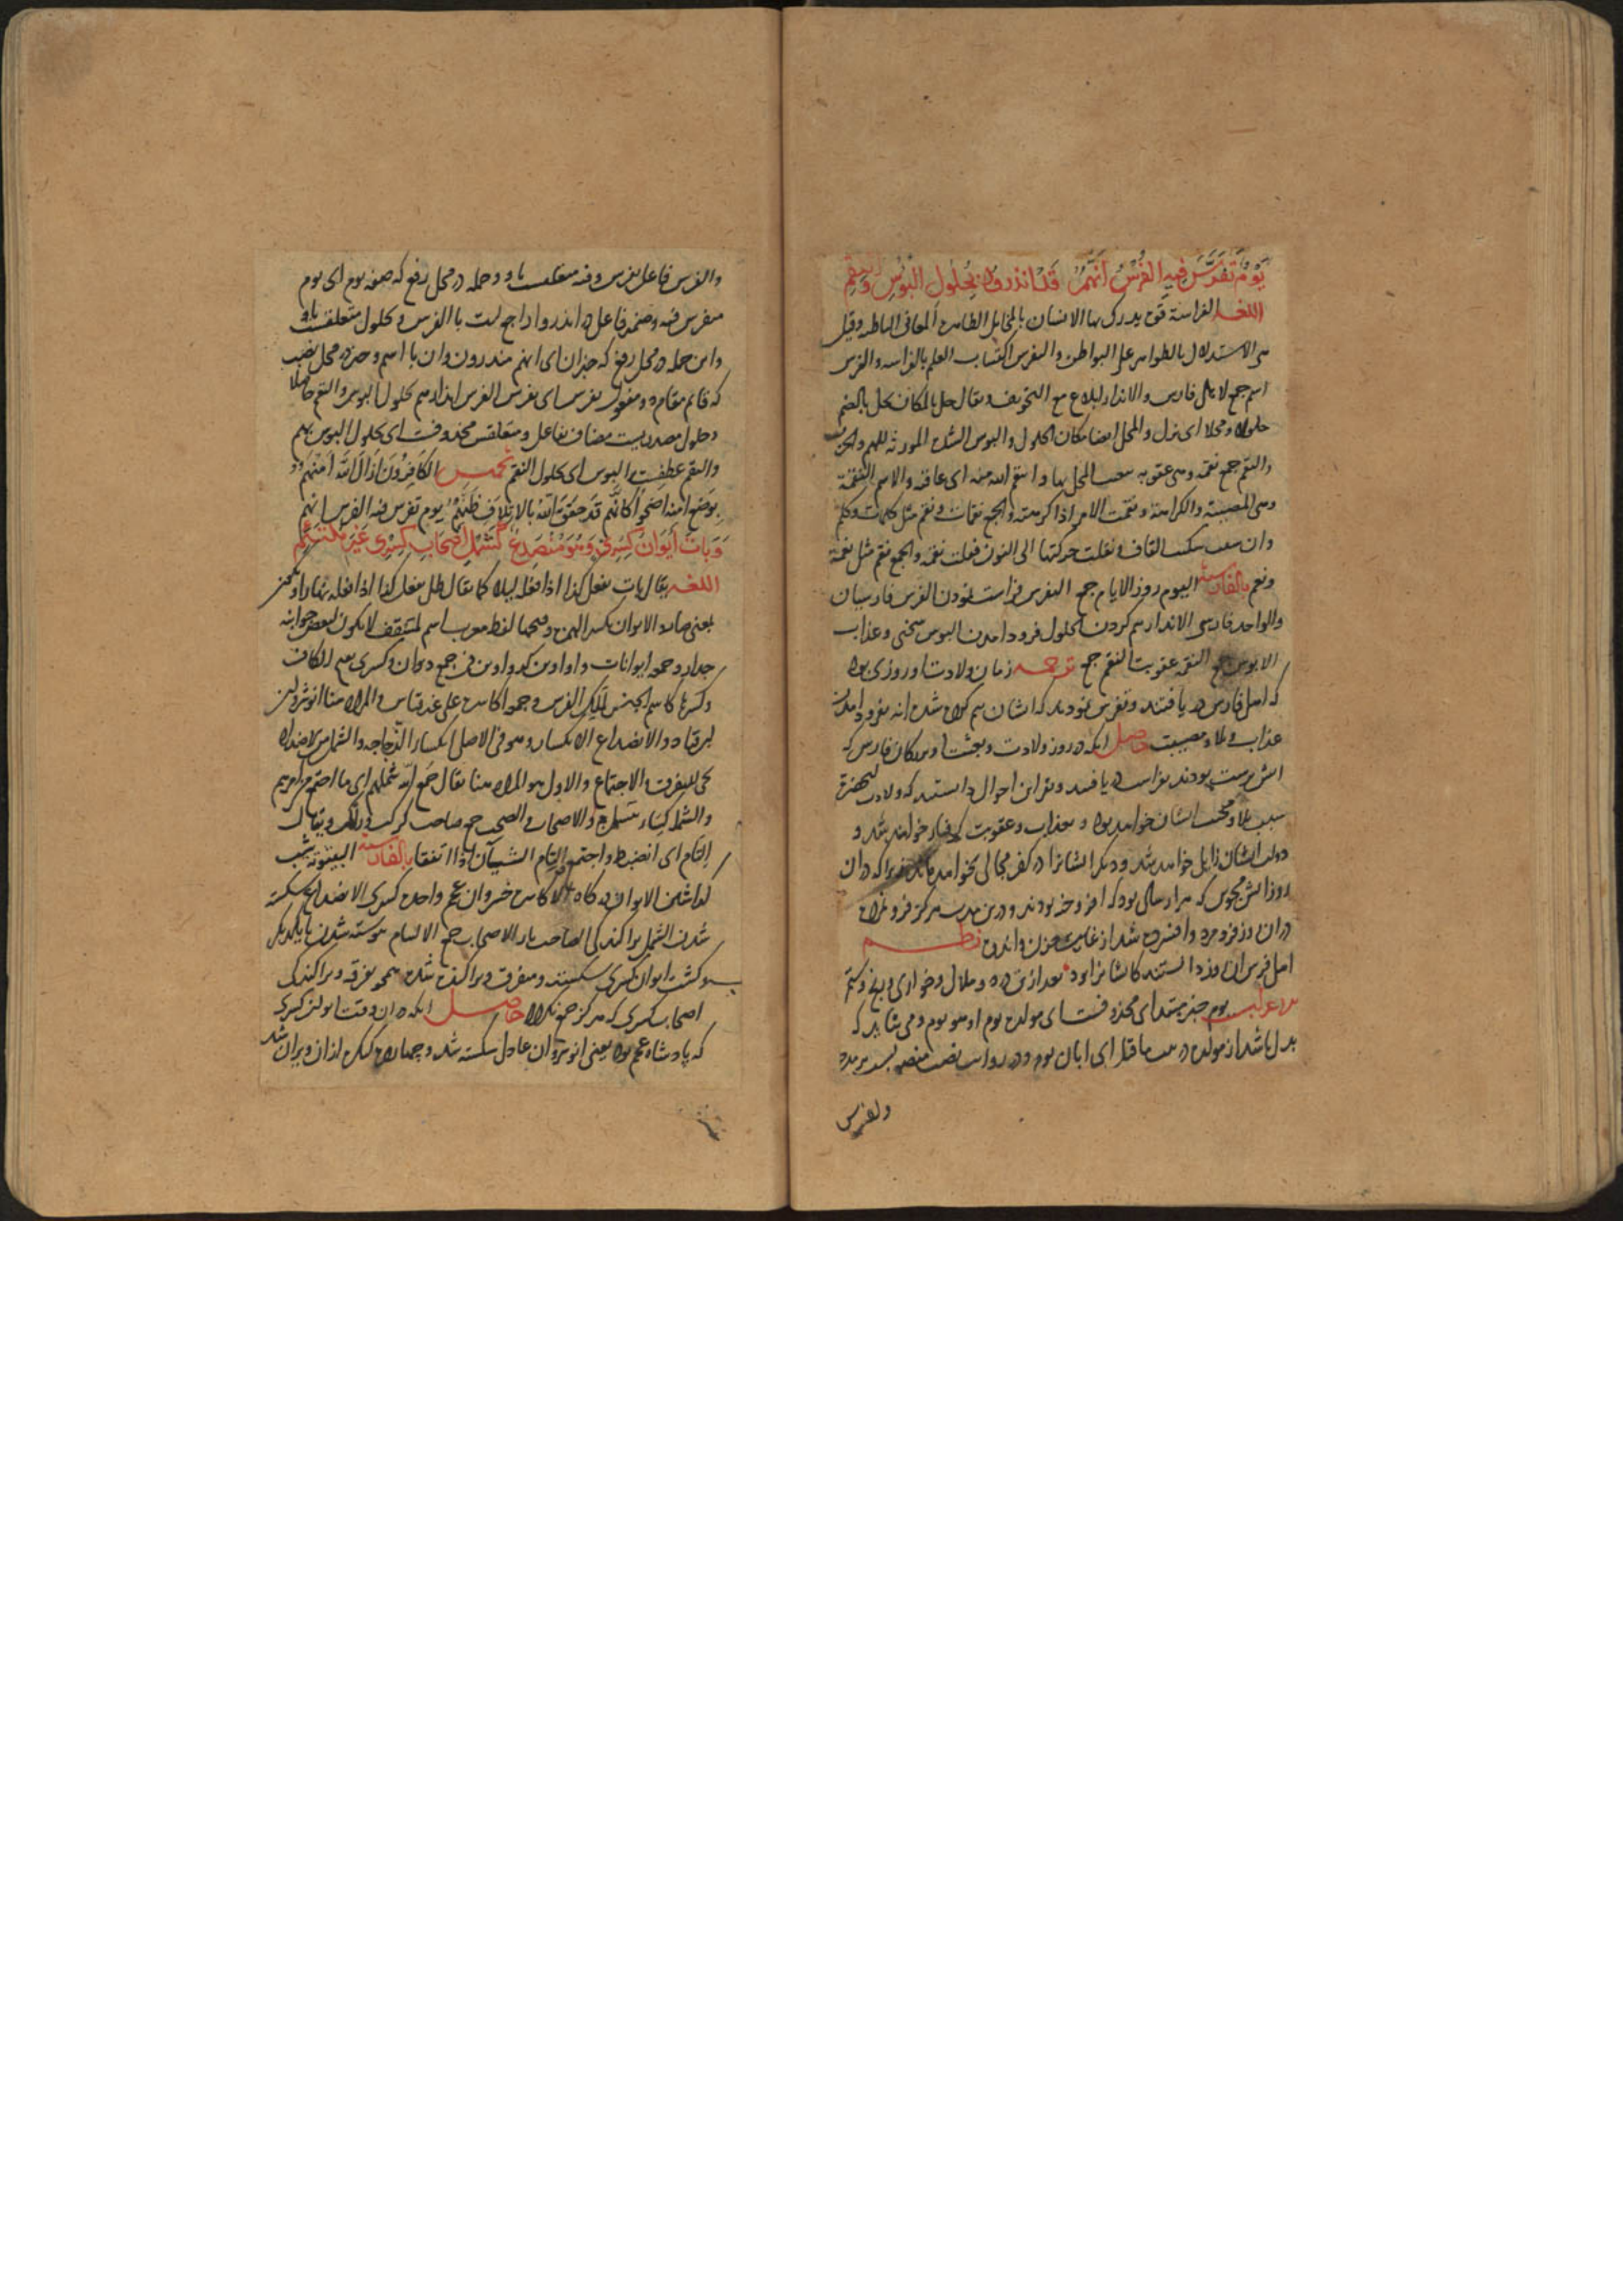 يَوْمٌ تَفَرَّسَ فِيهِ الفُرْسُ اَنَّهُمُ قَدْ انذروا بِحُلُولِ البُؤْسِ وَالنِقَمِ
اللغة الفراسة قوة يدرك بها الانسان بالمخايل الظاهرة المعانى الباطنة وقيل
هى الاستدلال بالظواهر على البواطن والتفرس اكتساب العلم بالفراسة والفرس
اسم جمع لاهل فارس والانذار ابلاغ مع التخويف ويقال حل بالمكان يحل بالضم
حلولا ومحلا اى نزل والمحل ايضا مكان الحلول والبوس الشدة المورثة للهم والحزن
والنقم جمع نقمة وهى عقوبة يصعب المحل بها وانتقم الله منه اى عاقبه والاسم النقمة
وهى المصيبة والكراهة ونقمت الامر اذا كرهته والجمع نقمات ونقم مثل كلمات وكلم
وان شئت سكنت القاف ونقلت حركتها الى النون فقلت نقمة والجمع نقم مثل نعمة
ونعم بالفارسية اليوم روز الايام جمع التفرس فراست نمودن الفرس فارسيان
والواحد فارسى الانذار بيم كردن الحلول فرود امدن البوس سختى وعذاب
الابوس جمع النقمة عقوبت النقم جمع ترجمه زمان ولادت او روزى بود
كه اهل فارس دريافتند وتفرس نمودند كه ايشان بيم كرده شده اند بفرود امدن
عذاب وبلا ومصيبت حاصل انكه در روز ولادت وبعثت او بزركان فارس كه
اتش پرست بودند بفراست دريافتند وبقراين احوال دانستند كه ولادت انحضرت
سبب بلا ومحنت ايشان خواهد بود و بعذاب وعقوبت گرفتار خواهند شد و
دولت ايشان زايل خواهد شد وديكر ايشانرا در كفر مجالى نخواهد ماند زيرا كه در ان
روز اتش مجوس كه هزار سالى بود كه افروخته بودند ودرين مدت هركز فرو نمرده
در ان روز فرو مرد وافسرده شد از غايت حزن واندوه نظم
اهل فرس ان روز دانستند كايشانرا بود بعد ازين درد وملال وخوارى ورنج وستم
اعراب يوم خبر مبتداى محذوفست اى مولده يوم او هو يوم ومى شايد كه
بدل باشد از مولده در بيت ماقبل اى ابان يوم ودر روايت نصب منصوبست بر مدح
والفرس
والفرس فاعل تفرس وفيه متعلقست باو وجمله در محل رفع كه صفه يوم اى يوم
متفرس فيه وضمير فاعل در انذروا راجع است با الفرس و بحلول متعلقست باو
واين جمله در محل رفع كه خبران اى انهم منذرون وان با اسم وخبر در محل نصب
كه قائم مقام دو مفعول تفرس اى تفرس الفرس انذارهم بحلول البوس والنقم حاصلا
وحلول مصدريست مضاف بفاعل ومتعلقش محذوفست اى بحلول البوس بهم
والنقم عطفست بر البوس اى حلول النقم تخميس الكَافِرُونَ اَزَالَ اللهُ اَمْنَهُم
بِوَضْعِ امنه اضحوا كَانَّهُم قَدْ حَقَّقَ اللهُ بالاِتْلَافِ ظَنَّهُمُ يوم تفرس فيه الفرس انهم
وَبَاتَ اَيْوَانُ كِسْرىٰ وَهُوَ مُنْصَدِعٌ كَشَمْلِ اَصْحَابِ كِسْرى غَيْرَ مُلْتَئِمِ
اللغة يقال بات يفعل كذا اذا فعله ليلا كما يقال ظل يفعل كذا اذا فعله نهارا
بمعنى صار والايوان بكسر الهمزة وفتحها لفظ معرب اسم لمسقف لا يكون لبعض جوانبه
جدار وجمعه ايوانات واواوين كدواوين فى جمع ديوان وكسرى بفتح الكاف
وكسرها كاسم الجنس لملك الفرس وجمعه اكاسره على غير قياس والمراد هنا انوشروان
بن قباد والانصداع الانكسار وهو فى الاصل انكسار الزجاجة والشمل من الاضداد
يجى للتفرق والاجتماع والاول هو المراد هنا يقال جمع الله شملهم اى ما اجتمع من امرهم
والشملة كساء يشتمل به والاصحاب والصحب جمع صاحب كركب وراكب ويقال
التام اى انضبط واجتمع والتام الشيآن اذا اتفقا بالفارسية البيتوته شب
كذاشتن الايوان دركاه الاكاسره خسروان عجم واحده كسرى الانصداع شكسته
شدن الشمل پراكندكى الصاحب يار الاصحاب جمع الالتيام پيوسته شدن با يكديكر
و كشت ايوان كسرى شكسته ومتفرق وپراكنده شده همچو تفرقه وپراكندكى
اصحاب كسرى كه هركز جمع نكردد حاصل انكه در ان وقت ايوان كسرى
كه پادشاه عجم بود يعنى انوشروان عادل شكسته شد وچهارده كنكره از ان ويران شد